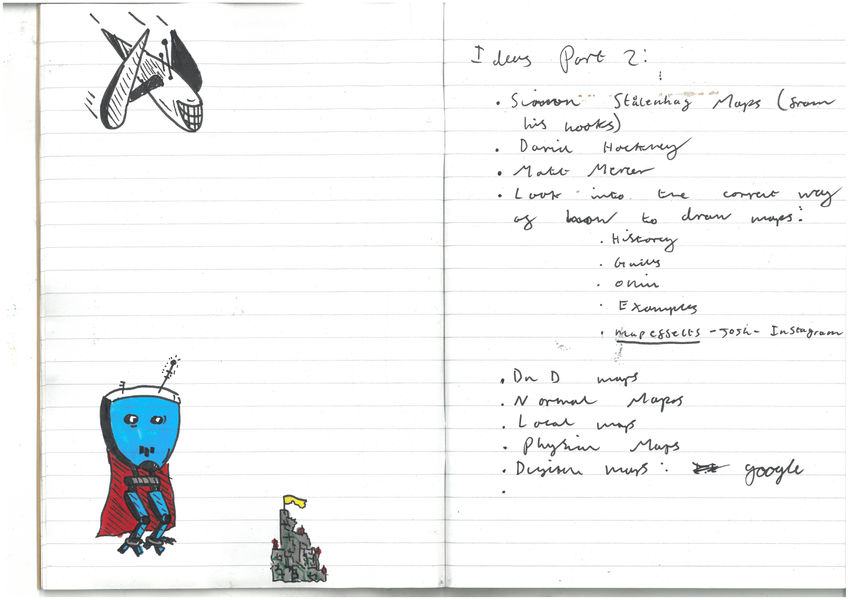 Ideas Part 2:
• Simon Stålenhag Maps (from
his books)
• David Hockney
• Matt Mercer
• Look into the correct way
of to draw maps:
• History
• Guides
• Examples
• mapeffects - Josh - Instagram
• DnD maps
• Normal Maps
• Local maps
• Physical Maps
• Digital maps: google
•